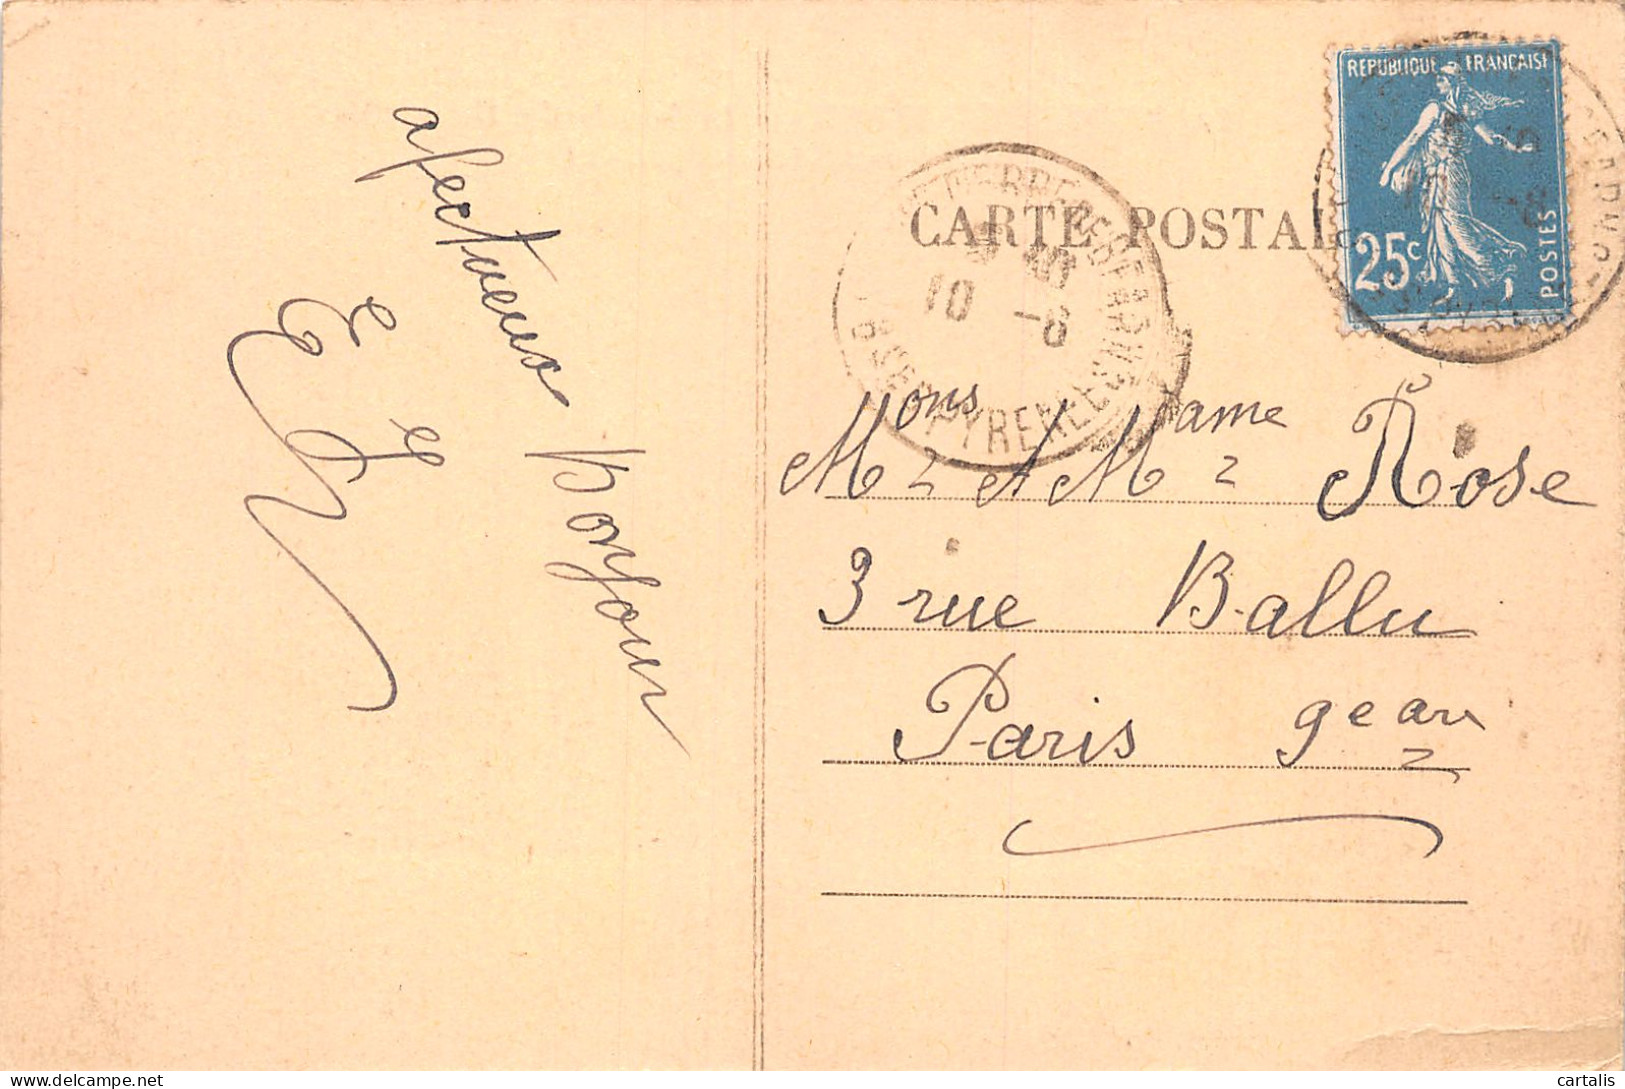 afectueux bonjour
CARTE POSTALE
RÉPUBLIQUE FRANÇAISE
25c
POSTES
10 -6
PYRENEES
Mons & Mame Rose
3 rue Ballu
Paris 9e arr
cartalis